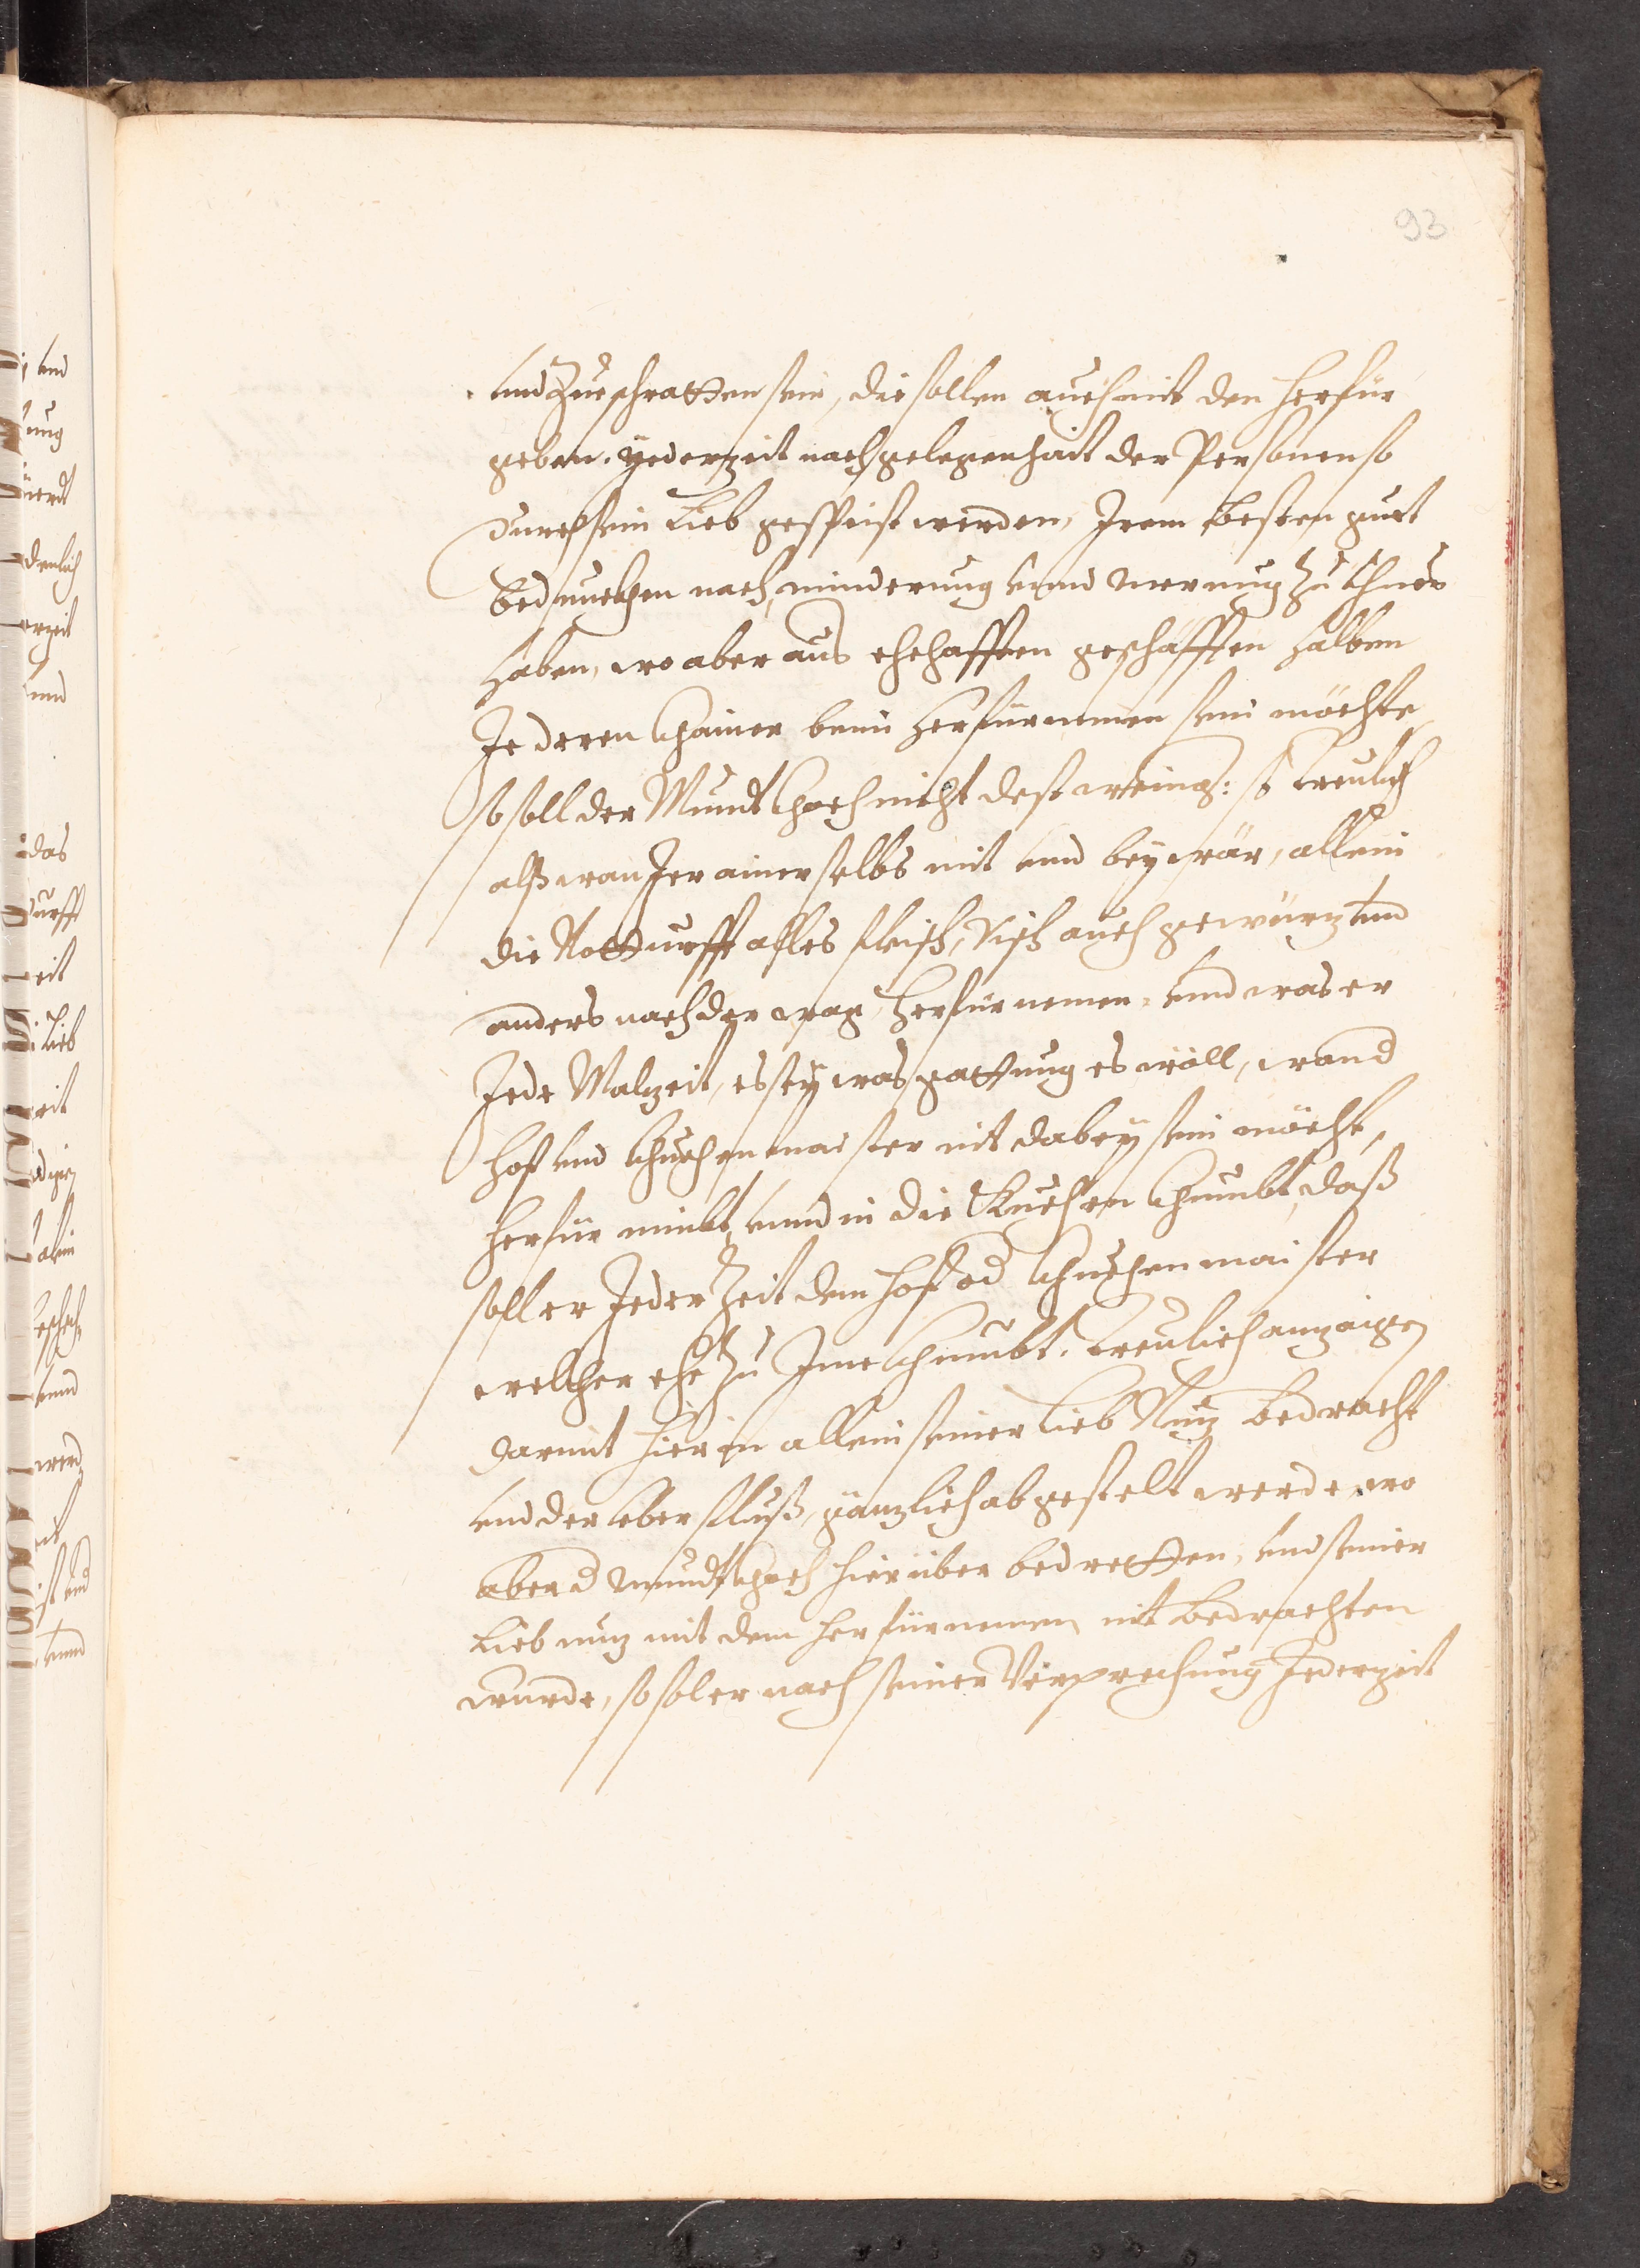 93
vnd Zuegschratten sein, die sollen auch mit den herfür
geben. yederzeit nach gelegenhait der Personen so
durch sein Lieb gespeist werden, Irem besten guet
bedunckhen nach, minderung vnnd merung zu thuen
haben, wo aber aus ehehafften geschäfften halben
Je deren khainer beim herfürnemen sein möchte,
so soll der Mundtkhoch nicht dest wenig: so treulich
alß wan Jer ainer selbs mit vnd bey wär, allein
die Notturfft alles fleisch, Visch auch gewürz vnd
anders nach der wag herfürnemen, vnnd was er
Jede Malzeit, es sey was gattung es wöll, wan d
hof vnd khuchenmaister nit dabey sein möcht,
herfür nimbt, vnnd in die Kuchen khumbt, daß
soll er Jeder Zeit dem hof od khuchenmaister
welcher ehe zu Ime khumbt. treulich anzaigen
darmit hierin allein seiner Lieb Nuz bedracht
vnd der vberfluß, gänzlich abgestelt werde, wo
aber d mundtkhoch hierüber bedretten, vnd seiner
Lieb nuz mit dem herfürnemen nit bedrachten
wurde, so sol er nach seiner Versprechung Jederzeit